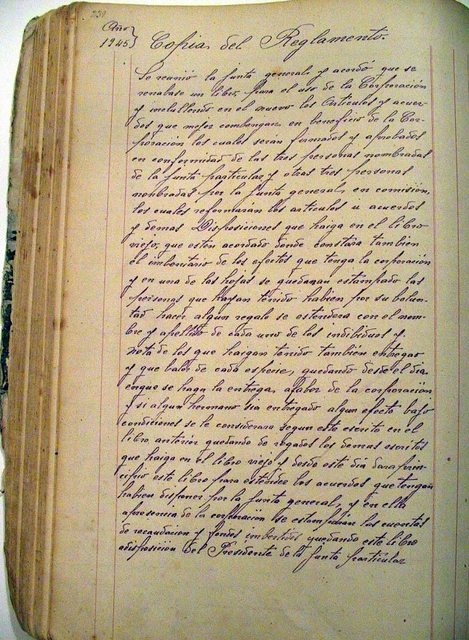 Año
1945} Copia del Reglamento.
Se reunió la junta general y acordó que se
renobase un libro, para el uso de la Corporación
y inclullendo en el nuevo los Articulos y acuer-
dos que mejor combengan en beneficio de la Cor-
poración los cuales serán formados y aprobados
en conformidad de las tres personas nombradas
de la junta particular y otras tres personas
nombradas por la junta general, en comisión,
los cuales reformaran los articulos u acuerdos
y demas Disposiciones que haiga en el libro
viejo, que estén acordado donde constara tambien
el imbentario de los efectos que tenga la corporación
y en una de las hojas se quedaran estampado las
personas que hayan tenido habien por su bolun-
tad hacer algun regalo se estendera con el nom-
bre y apellido de cada uno de los indibiduos y.
nota de los que haigan tenido tambien entregar
y que balor de cada especie, quedando desde el dia
enque se haga la entrega, afabor de la corporación
y si algun hermano ha entregado algun efecto bajo
condiciones se le considerara segun esté escrito en el
libro anterior quedando de rogados los demas escritos
que haiga en el libro viejo y desde este dia dara prin-
cipio este libro para estender los acuerdos que tengan
habien disponer por la junta general, y en ella
apresencia de la corporación se estamparan las cuentas
de recaudacion y fondos imbertidos quedando este libro
adisposición del Presidente de la junta particular